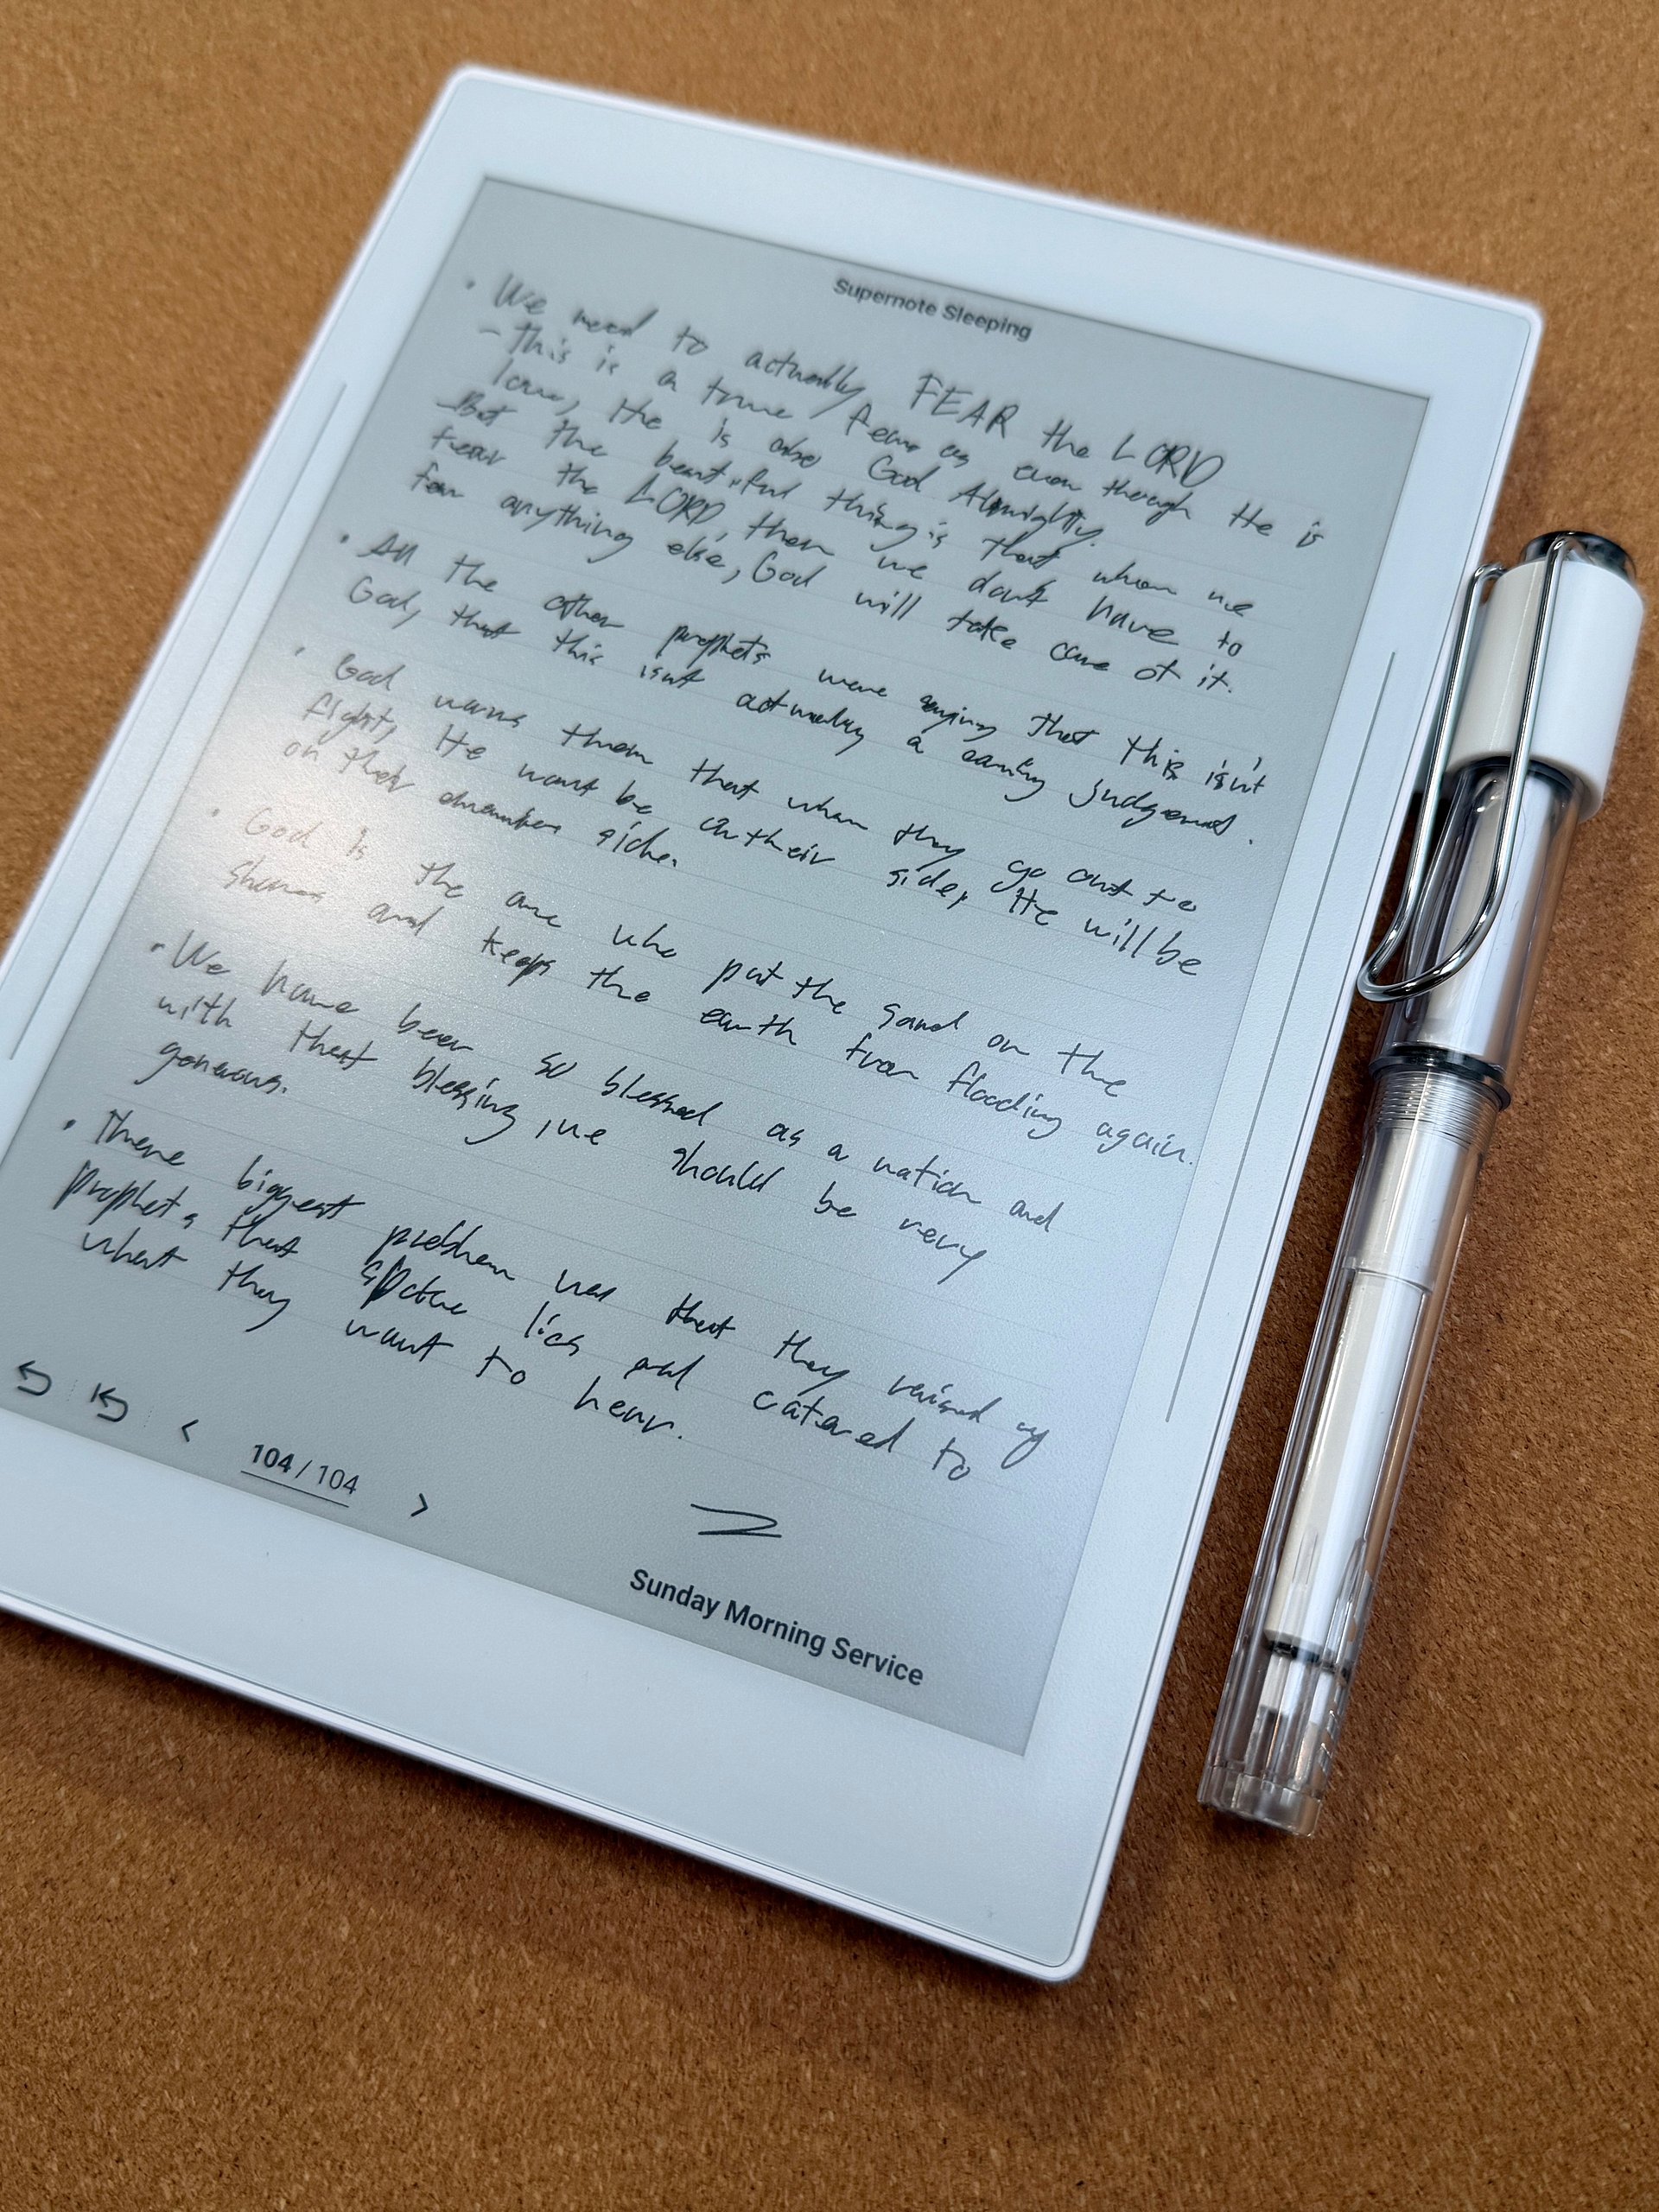 Supernote Sleeping
• We need to actually FEAR the LORD
- This is a true fear as even though He is
love, He is also God Almighty.
- But the beautiful thing is that when we
fear the LORD, then we don't have to
fear anything else, God will take care of it.
• All the other prophets were saying that this isn't
God, that this isn't actually a coming judgement.
• God warns them that when they go out to
fight, He won't be on their side, He will be
on their enemies side.
• God is the one who put the sand on the
shores and keeps the earth from flooding again.
• We have been so blessed as a nation and
with that blessing, we should be very
generous.
• There biggest problem was that they raised up
prophets that spoke lies and catered to
what they want to hear.
104 / 104
Sunday Morning Service